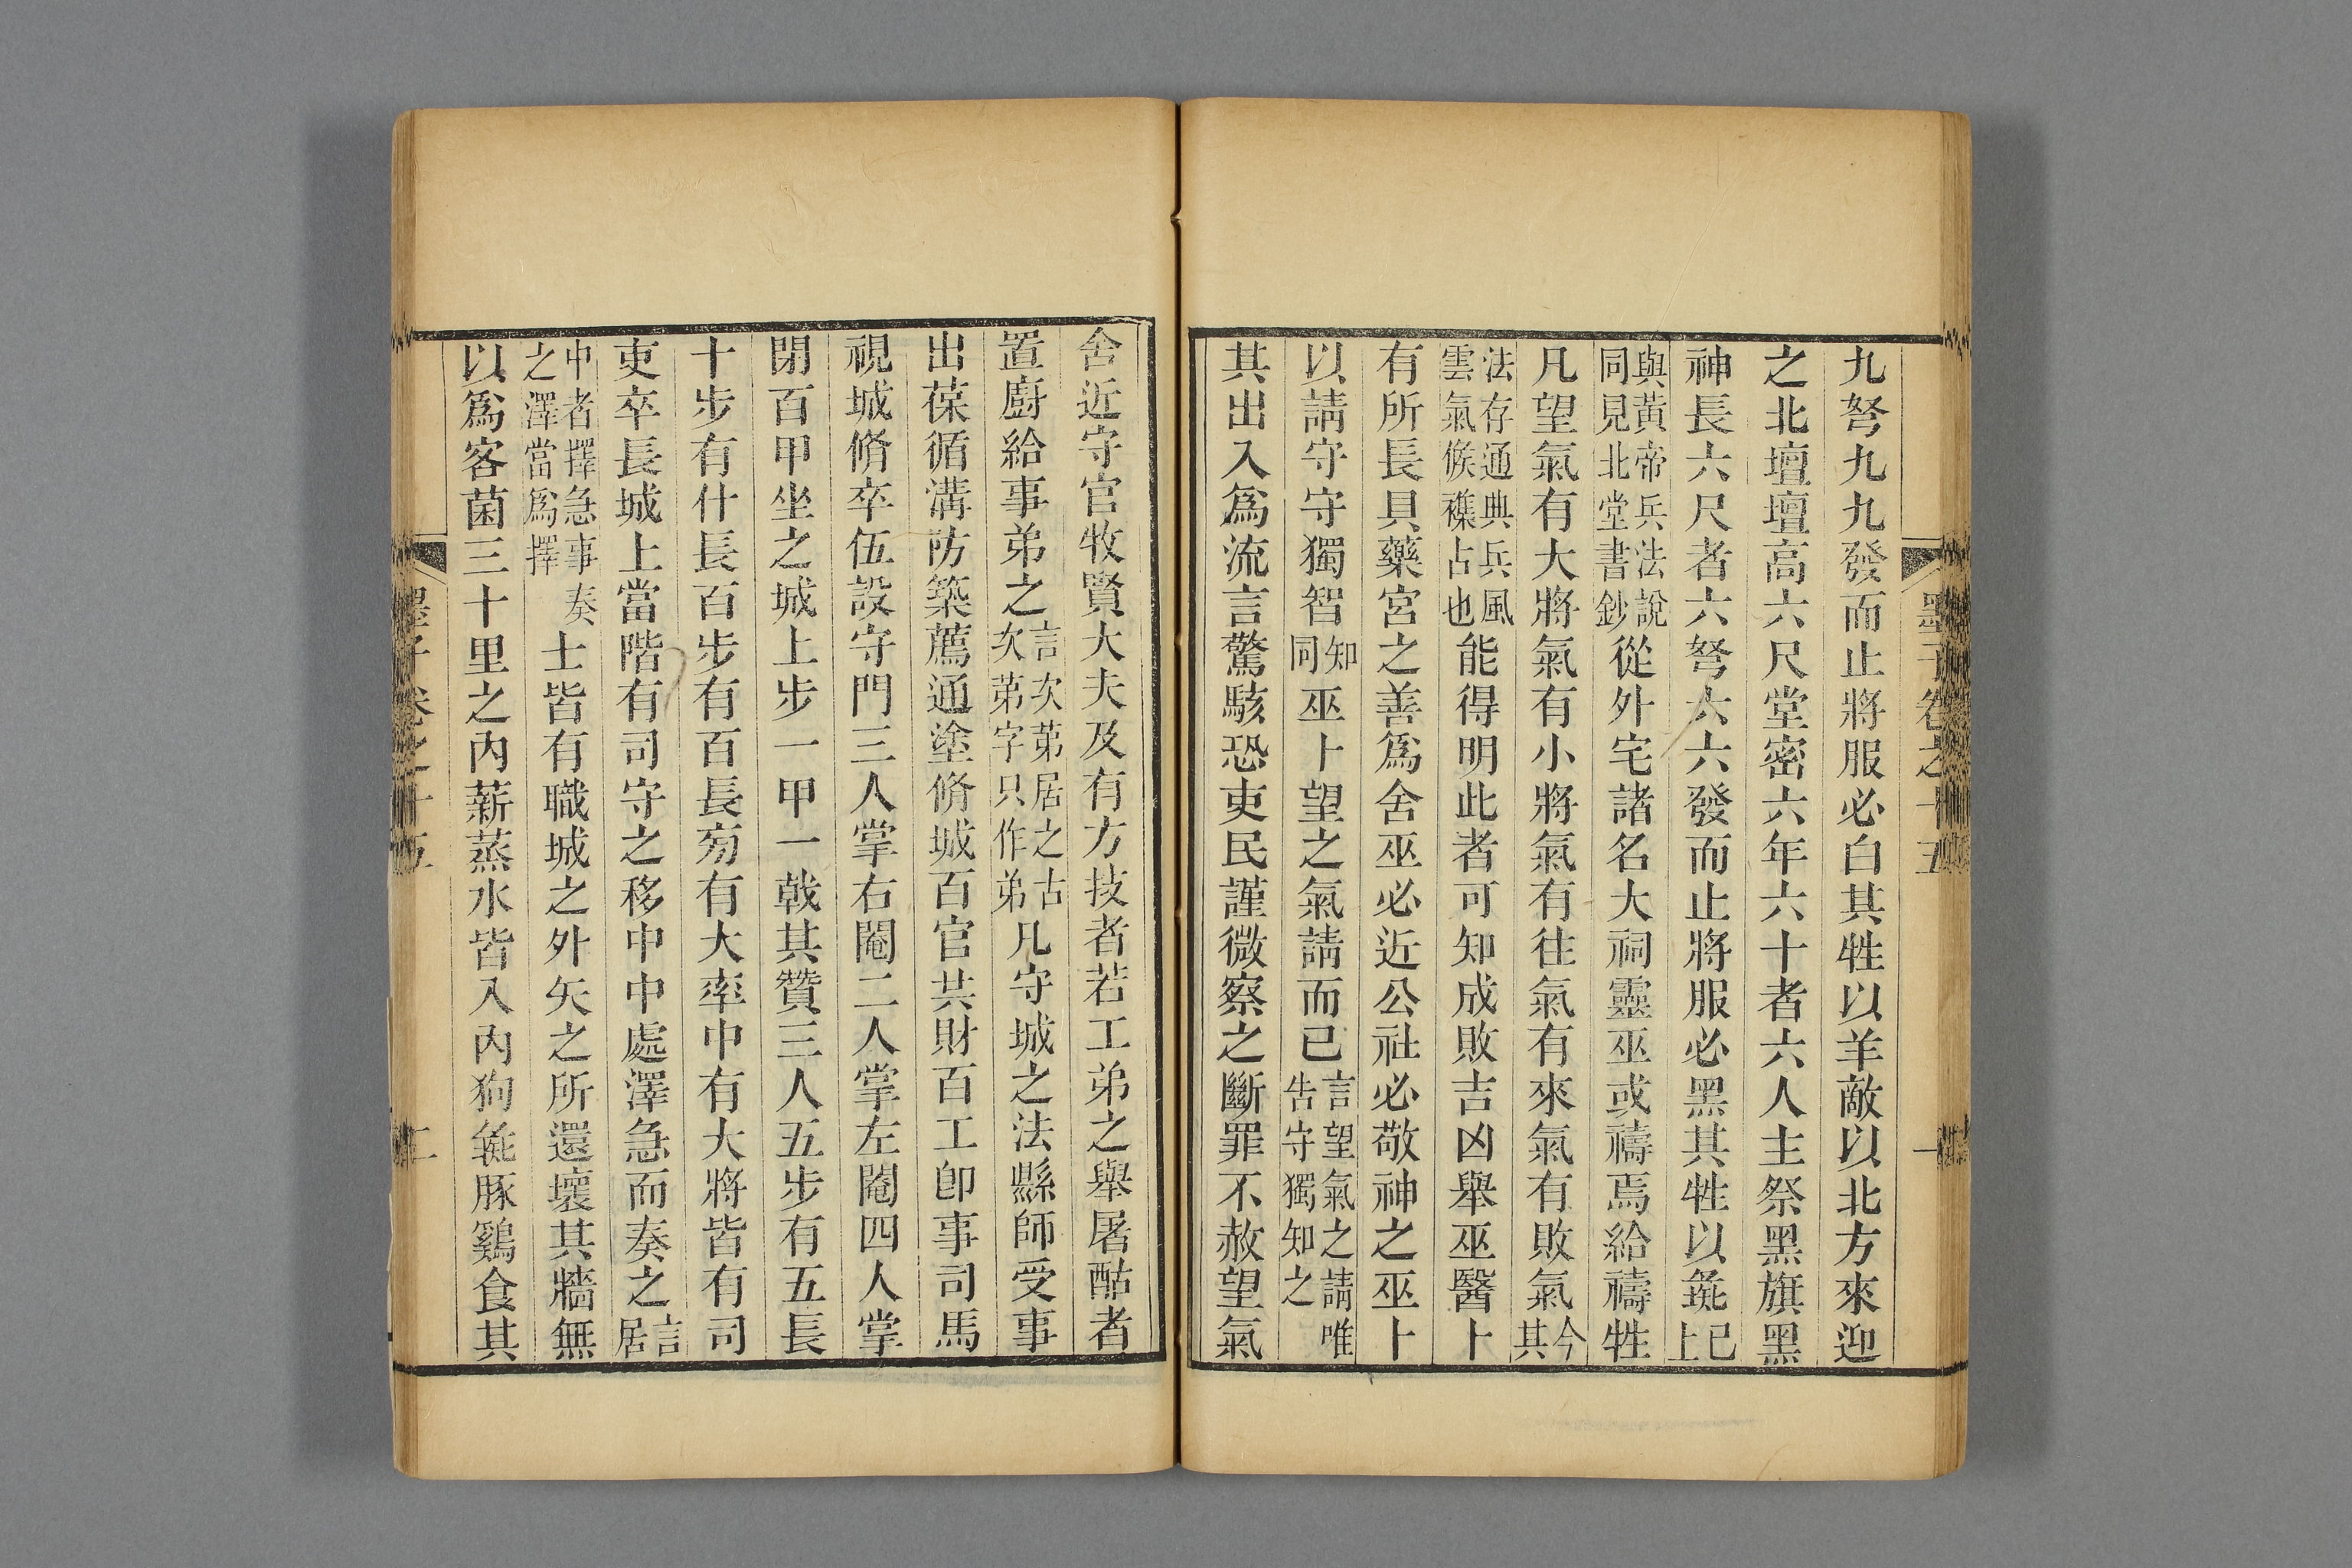 九弩九九發而止將服必白其牲以羊敵以北方來迎
之北壇壇高六尺堂密六年六十者六人主祭黑旗黑
神長六尺者六弩六六發而止將服必黑其牲以彘已上
與黃帝兵法說同見北堂書鈔從外宅諸名大祠靈巫或禱焉給禱牲
凡望氣有大將氣有小將氣有往氣有來氣有敗氣今其
法存通典兵風雲氣候襍占也能得明此者可知成敗吉凶舉巫醫卜
有所長具藥宮之善爲舍巫必近公社必敬神之巫卜
以請守守獨智知同巫卜望之氣請而已言望氣之請唯告守獨知之
其出入爲流言驚駭恐吏民謹微察之斷罪不赦望氣
墨子卷之十五
一
舍近守官牧賢大夫及有方技者若工弟之舉屠酤者
置廚給事弟之言次苐居之古次苐字只作弟凡守城之法縣師受事
出葆循溝防築薦通塗脩城百官共財百工卽事司馬
視城脩卒伍設守門三人掌右閹二人掌左閹四人掌
閉百甲坐之城上步一甲一戟其贊三人五步有五長
十步有什長百步有百長旁有大率中有大將皆有司
吏卒長城上當階有司守之移中中處澤急而奏之言居
中者擇急事奏之澤當爲擇士皆有職城之外矢之所還壞其牆無
以爲客菌三十里之內薪蒸水皆入內狗彘豚鷄食其
墨子卷之十五
二